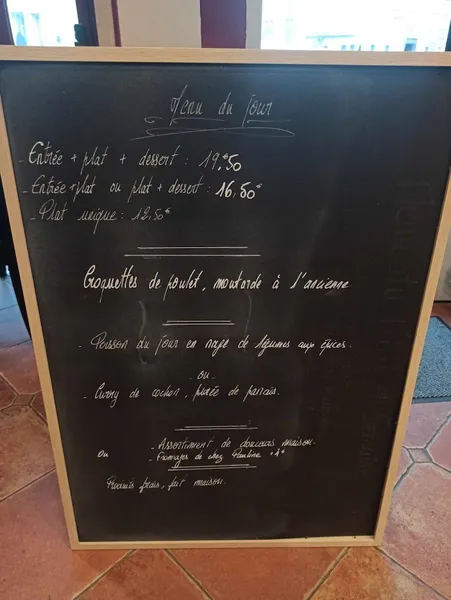 Menu du jour
- Entrée + plat + dessert : 19,50
- Entrée + plat ou plat + dessert : 16,50€
- Plat unique : 12,50€
Croquettes de poulet, moutarde à l'ancienne
- Poisson du jour en nage de légumes aux épices.
- ou -
- Curry de cochon, purée de panais.
- Assortiment de douceurs maison.
ou - Fromages de chez Pauline
Produits frais, fait maison.